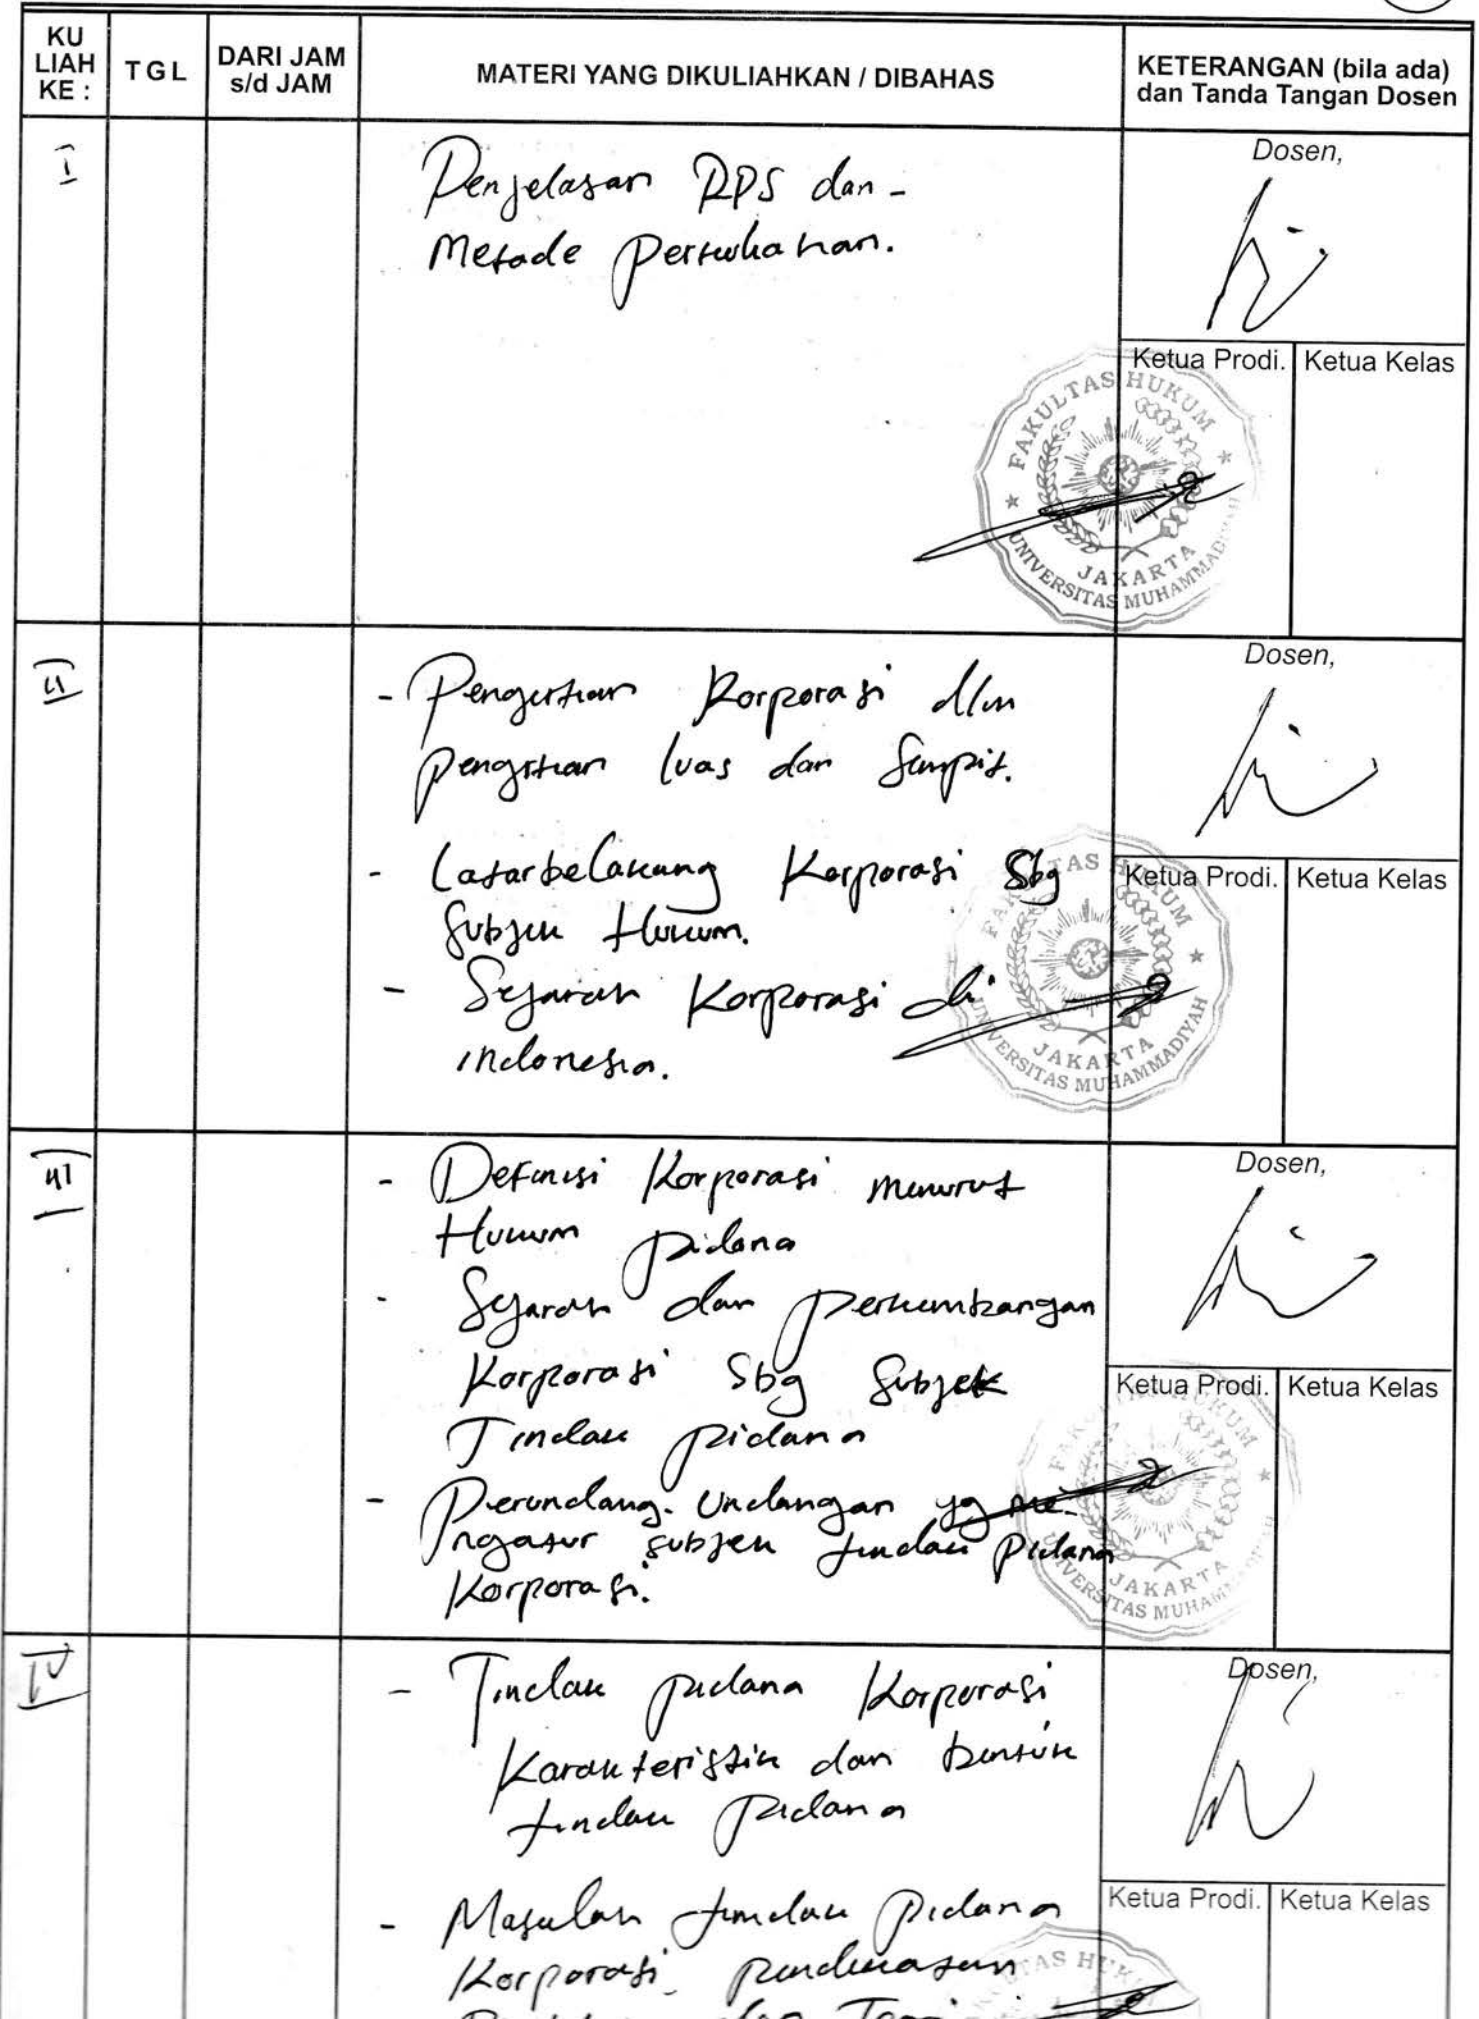 KU LIAH KE :
TGL
DARI JAM s/d JAM
MATERI YANG DIKULIAHKAN / DIBAHAS
KETERANGAN (bila ada) dan Tanda Tangan Dosen
I
Penjelasan RPS dan -
Metode perkuliahan.
Dosen,
Ketua Prodi.
Ketua Kelas
FAKULTAS HUKUM
JAKARTA
UNIVERSITAS MUHAMMADIYAH
II
- Pengertian Korporasi dlm
pengertian luas dan Sempit.
- Latarbelakang Korporasi Sbg
Subjek Hukum.
- Sejarah Korporasi di
indonesia.
Dosen,
Ketua Prodi.
Ketua Kelas
FAKULTAS HUKUM
JAKARTA
UNIVERSITAS MUHAMMADIYAH
III
- Definisi Korporasi menurut
Hukum pidana
- Sejarah dan perkembangan
Korporasi Sbg Subjek
Tindak pidana
- Perundang-Undangan yg me-
ngatur subjek tindak pidana
Korporasi.
Dosen,
Ketua Prodi.
Ketua Kelas
FAKULTAS HUKUM
JAKARTA
UNIVERSITAS MUHAMMADIYAH
IV
- Tindak pidana Korporasi
Karakteristik dan bentuk
tindak pidana
- Masalah tindak pidana
Korporasi
dan Teori
Dosen,
Ketua Prodi.
Ketua Kelas